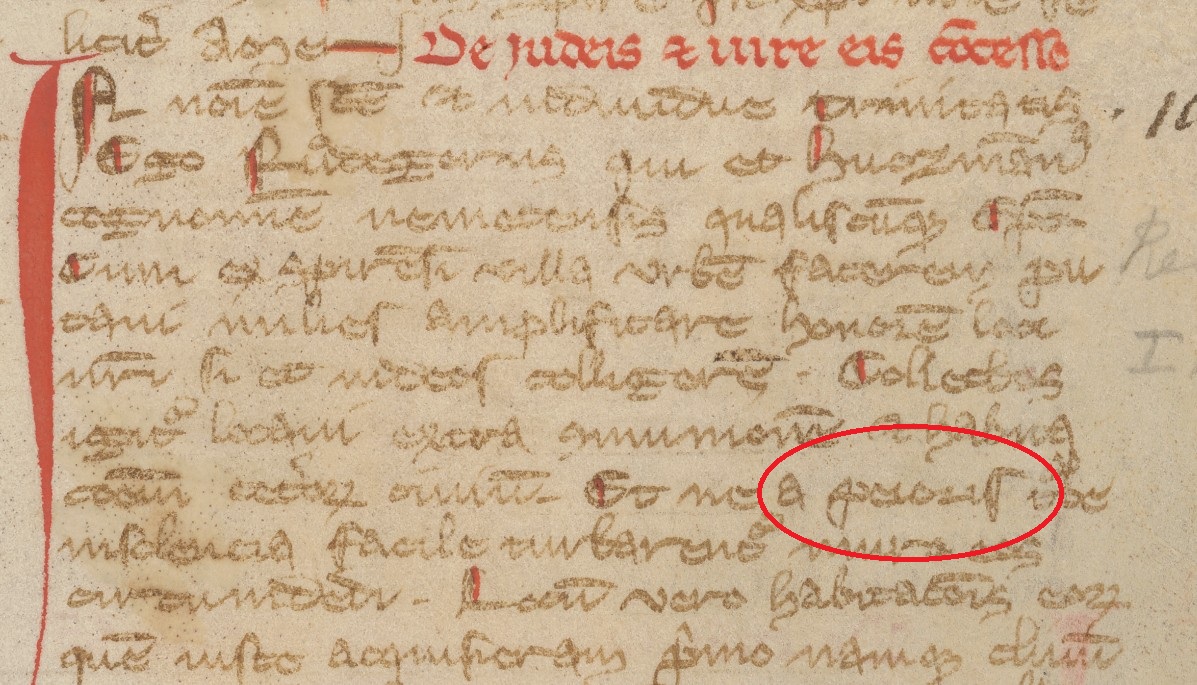 licitē
De judeis et iure eis cōcesso
In noīe sc̄e et individue trinitatis
Ego Rudegerus qui et huozmān9
cognomīe nemetensis qualiscūqꝫ Ep̄c
Cum ex spirēsi villa vrbē facerem pu
tavi milies amplificare honorē loci
nr̄i si et iudeos colligerē. Collectos
igit͛ locavi extra ꝯmunionē et habita
coēm ceteroꝝ civiū. Et ne a peioris t͛be
insolencia facile turbarent͛ muro eos
circumdedi. Locū vero habitacōis eoꝝ
quē iuste acquisieram p͛mo namqꝫ clivū